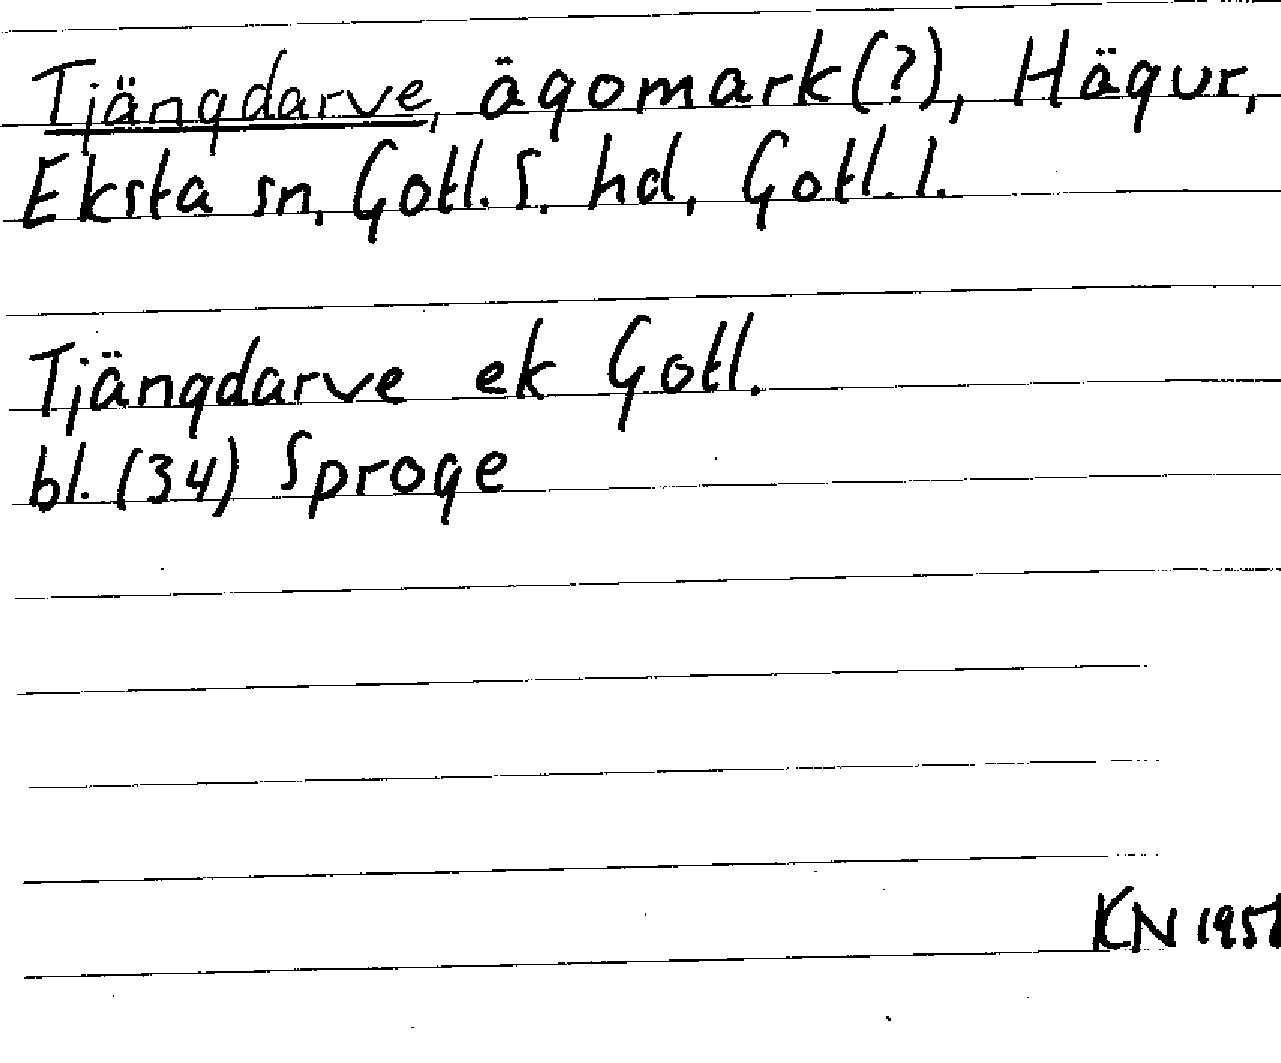 Tjängdarve, ägomark(?), Hägur,
Eksta sn, Gotl. S. hd, Gotl. l.
Tjängdarve ek Gotl.
bl. (34) Sproge
KN